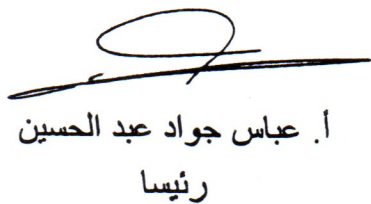 أ. عباس جواد عبد الحسين
رئيسا